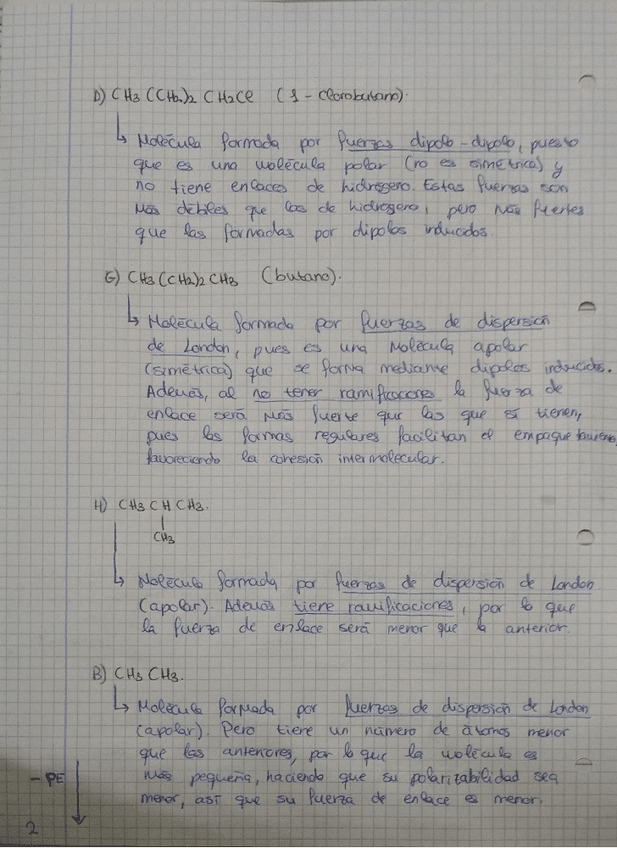 D) CH3 (CH2)2 CH2Cl (1-clorobutano).
↳ Molécula formada por fuerzas dipolo-dipolo, puesto
que es una molécula polar (no es simétrica) y
no tiene enlaces de hidrógeno. Estas fuerzas son
más débiles que las de hidrógeno, pero más fuertes
que las formadas por dipolos inducidos.
G) CH3(CH2)2 CH3 (butano).
↳ Molécula formada por fuerzas de dispersión
de London, pues es una molécula apolar
(simétrica) que se forma mediante dipolos inducidos.
Además, al no tener ramificaciones la fuerza de
enlace será más fuerte que las que sí tienen,
pues las formas regulares facilitan el empaquetamiento,
favoreciendo la cohesión intermolecular.
H) CH3 CH CH3.
CH3
↳ Molécula formada por fuerzas de dispersión de London
(apolar). Además tiene ramificaciones, por lo que
la fuerza de enlace será menor que la anterior.
B) CH3 CH3.
↳ Molécula formada por fuerzas de dispersión de London
(apolar). Pero tiene un número de átomos menor
que las anteriores, por lo que la molécula es
más pequeña, haciendo que su polarizabilidad sea
menor, así que su fuerza de enlace es menor.
- PE
2